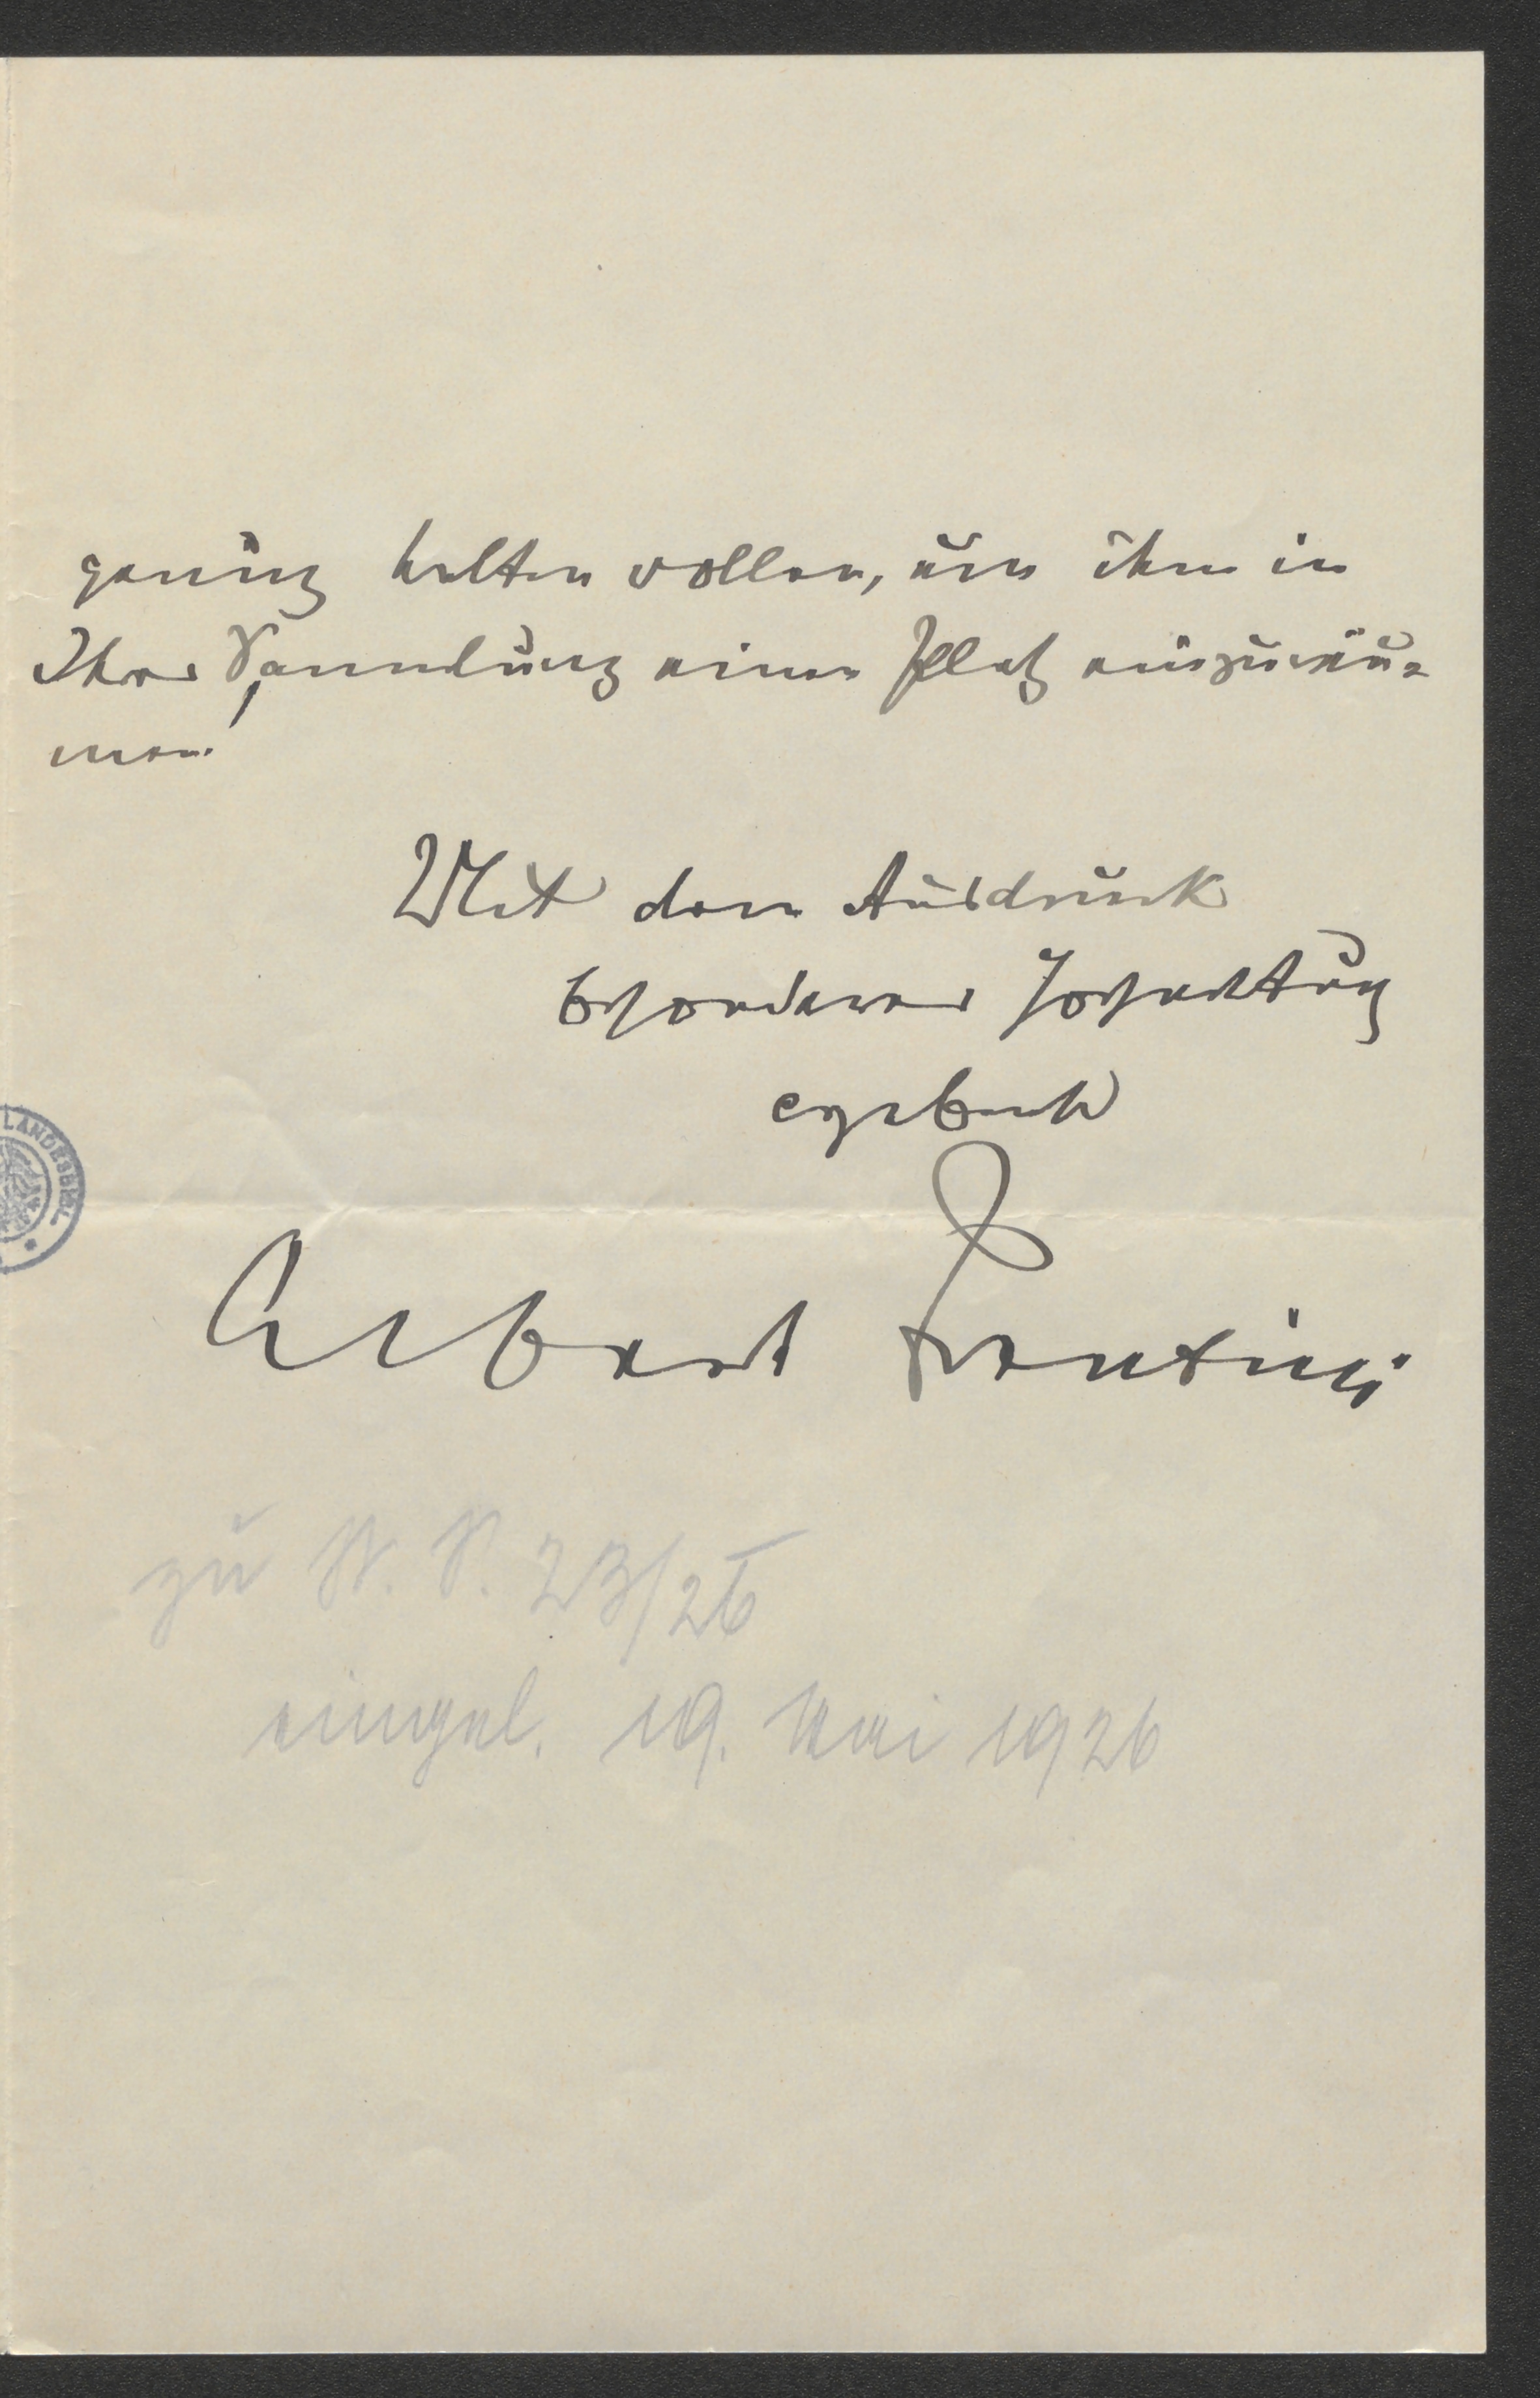 genug halten wollen, um ihm in
Ihrer Sammlung einen Platz einzuräu=
men!
Mit dem Ausdruck
besonderer Hochachtung
ergebenst
Albert
zu N. N. 23/26
eingel. 19. Mai 1926
LANDESBIBL.